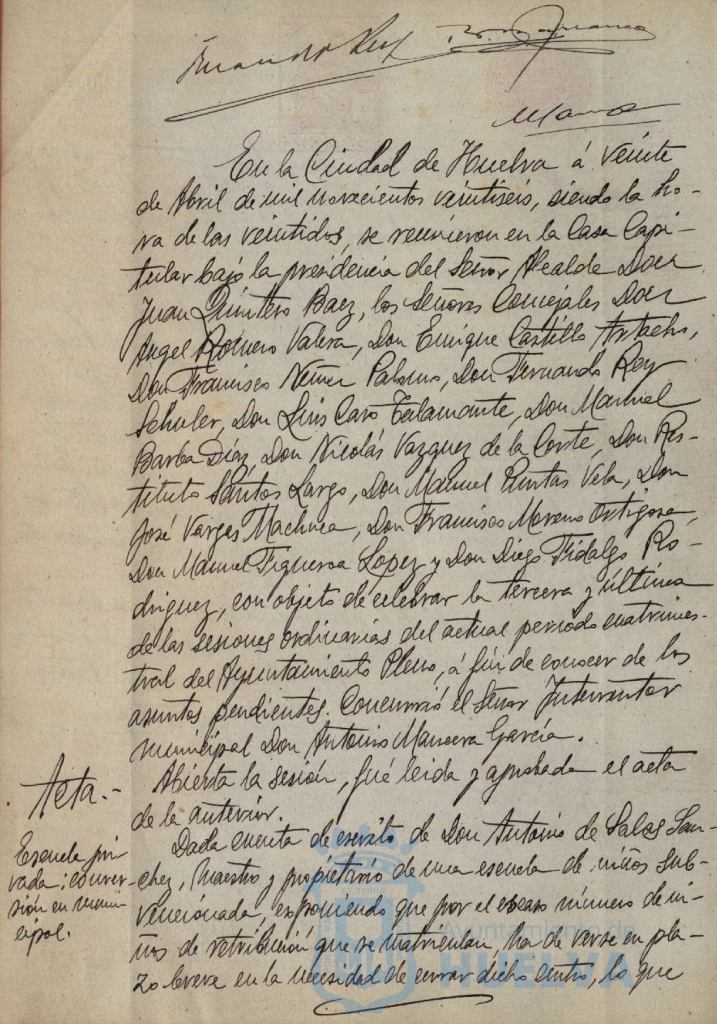 Fernando Rey
En la Ciudad de Huelva á veinte
de Abril de mil novecientos veintiseis, siendo la ho-
ra de las veintidos, se reunieron en la Casa Capi-
tular bajo la presidencia del Señor Alcalde Don
Juan Quintero Baez, los Señores Concejales Don
Angel Romero Valera, Don Enrique Castillo Artacho,
Don Francisco Núñez Palomo, Don Fernando Rey
Schuler, Don Luis Caro Talamante, Don Manuel
Barba Diáz, Don Nicolás Vazquez de la Corte, Don Res-
tituto Santos Largo, Don Manuel Puntas Vela, Don
José Vargas Machuca, Don Francisco Moreno Ortigosa,
Don Manuel Figueroa Lopez y Don Diego Fidalgo Ro-
driguez, con objeto de celebrar la tercera y última
de las sesiones ordinarias del actual periodo cuatrimes-
tral del Ayuntamiento Pleno, á fin de conocer de los
asuntos pendientes. Concurrió el Señor Interventor
municipal Don Antonio Mancera García.
Acta.-
Abierta la sesión, fué leida y aprobada el acta
de la anterior.
Escuela pri-
vada: conver-
sión en muni-
cipal.
Dada cuenta de escrito de Don Antonio de Salas San-
chez, Maestro y propietario de una escuela de niños sub-
vencionada, exponiendo que por el escaso número de ni-
ños de retribución que se matriculan, ha de verse en pla-
zo breve en la necesidad de cerrar dicho centro, lo que
Ayuntamiento de
HUELVA